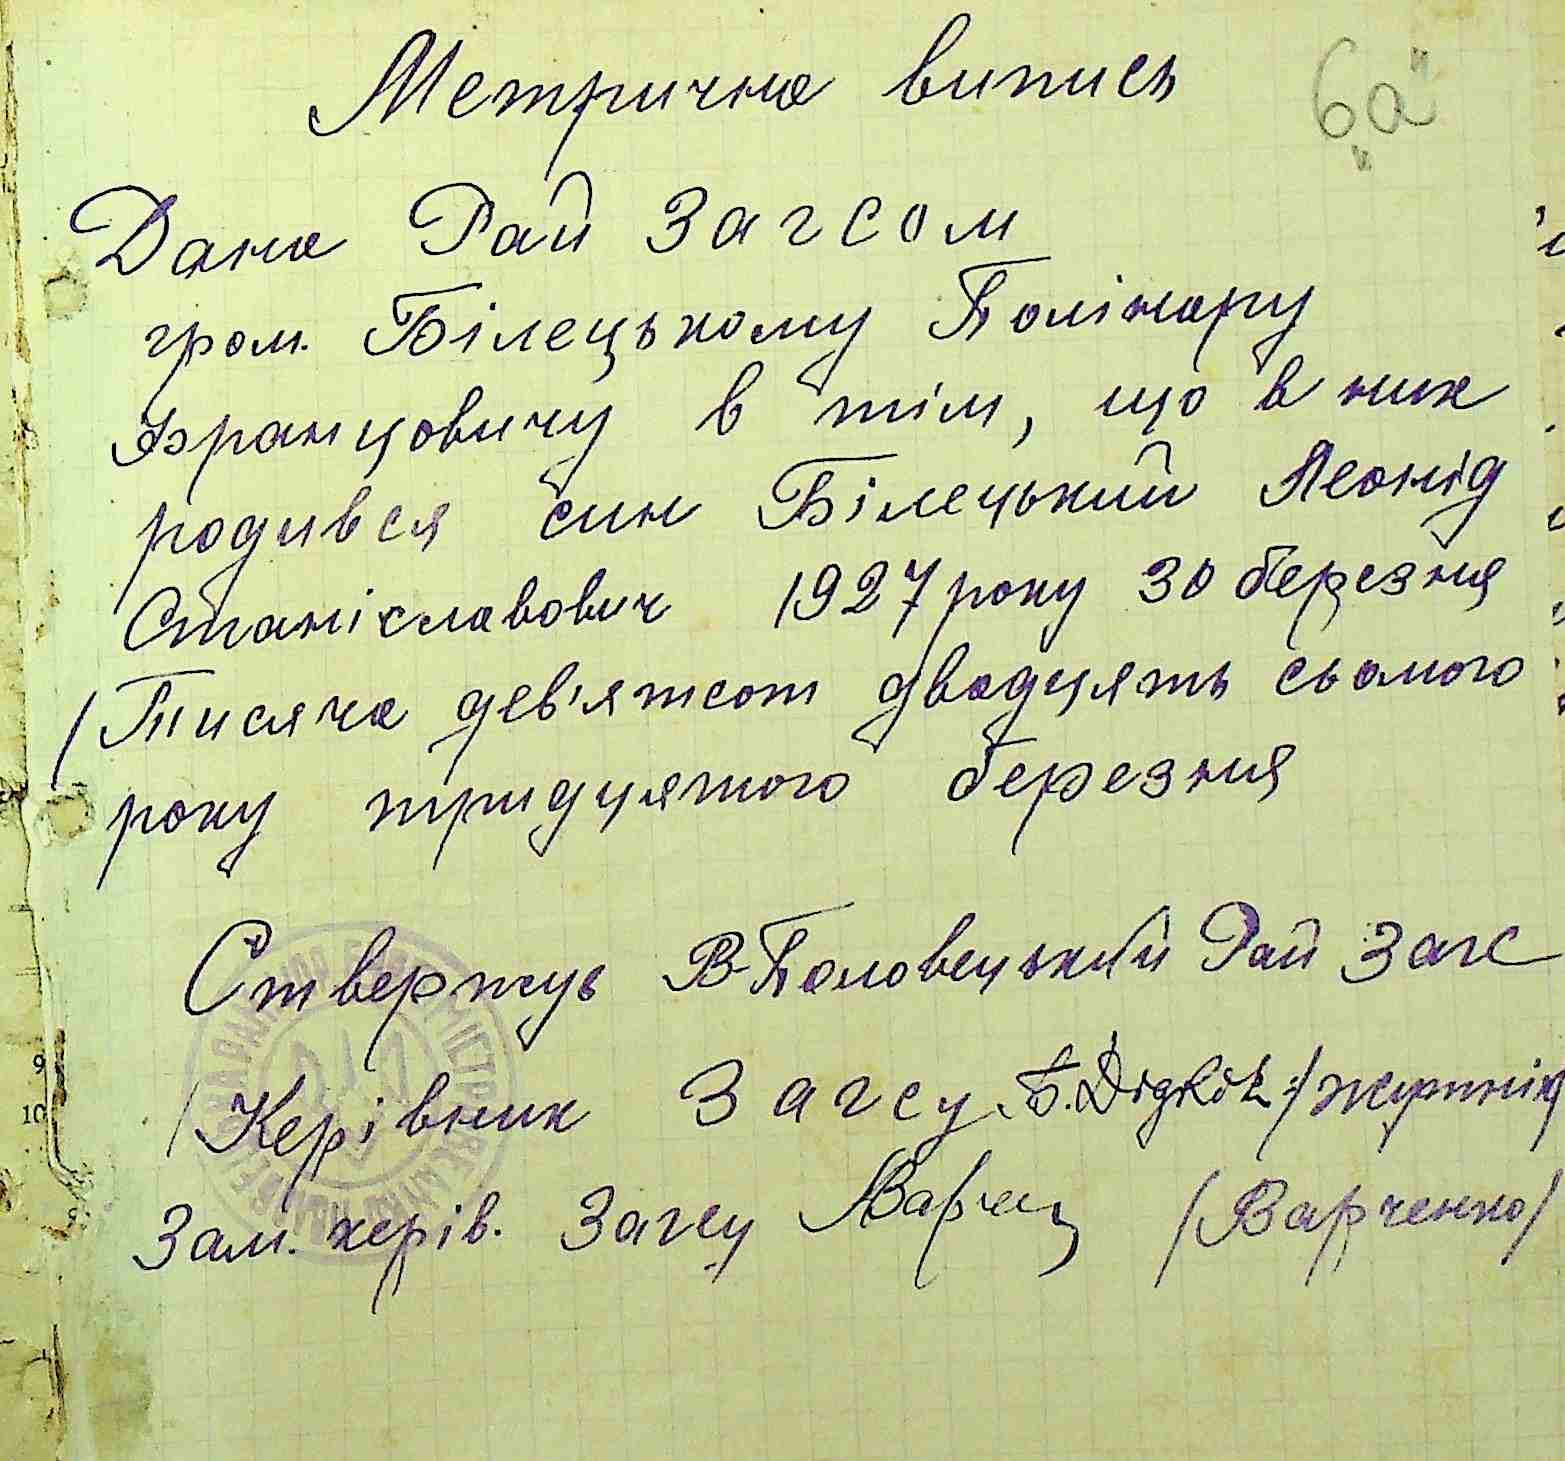 Метрична випись
6 "а"
Дана Рай Загсом
гром. Білецькому Полінару
Францовичу в тім, що в них
родився син Білецький Леонід
Станіславович 1927 року 30 березня
/Тисяча дев'ятсот двадцять сьомого
року тридцятого березня
Ствержує В-Половецький Рай Загс
Керівник Загсу
Зам. керів. Загсу /Варченко/
9
10